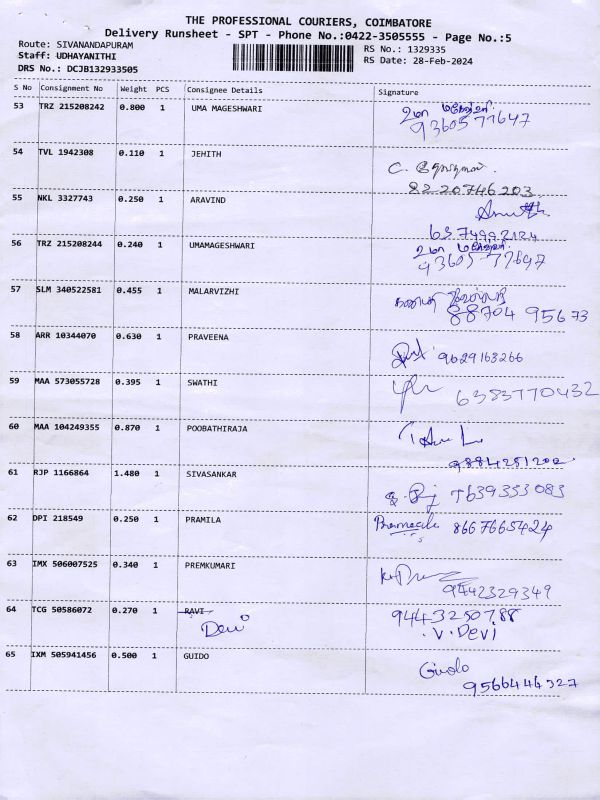 THE PROFESSIONAL COURIERS, COIMBATORE
Delivery Runsheet - SPT - Phone No.:0422-3505555 - Page No.:5
Route: SIVANANDAPURAM
RS No.: 1329335
Staff: UDHAYANITHI
RS Date: 28-Feb-2024
DRS No.: DCJB132933505
S No Consignment No Weight PCS Consignee Details Signature
53 TRZ 215208242 0.800 1 UMA MAGESHWARI உமா
9360577647
54 TVL 1942308 0.110 1 JEHITH C.
82 20746 203
55 NKL 3327743 0.250 1 ARAVIND
56 TRZ 215208244 0.240 1 UMAMAGESHWARI உமா
57 SLM 340522581 0.455 1 MALARVIZHI
88704 95673
58 ARR 10344070 0.630 1 PRAVEENA 9629163266
59 MAA 573055728 0.395 1 SWATHI 6383770432
60 MAA 104249355 0.870 1 POOBATHIRAJA
9884251202
61 RJP 1166864 1.480 1 SIVASANKAR
62 DPI 218549 0.250 1 PRAMILA 8667665424
63 IMX 506007525 0.340 1 PREMKUMARI
9442329349
64 TCG 50586072 0.270 1 RAVI 9443250788
Devi V. Devi
65 IXM 505941456 0.500 1 GUIDO Guido
9566446327